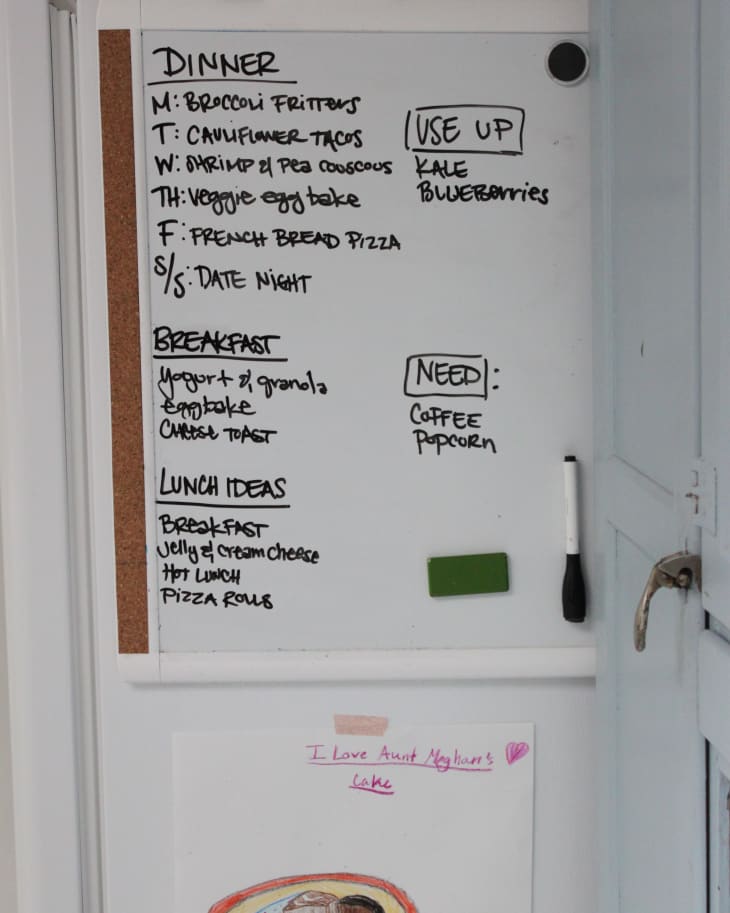 DINNER
M: BROCCOLI FRITTERS
T: CAULIFLOWER TACOS
W: SHRIMP & Pea couscous
TH: Veggie egg bake
F: FRENCH BREAD PIZZA
S/S: DATE NIGHT
USE UP
KALE
BLUEBerries
BREAKFAST
yogurt & granola
eggbake
CHEESE TOAST
NEED:
COFFEE
POPCORN
LUNCH IDEAS
BreakFAST
Jelly & cream cheese
HOT LUNCH
PIZZA ROLLS
I Love Aunt Meghan's
Cake